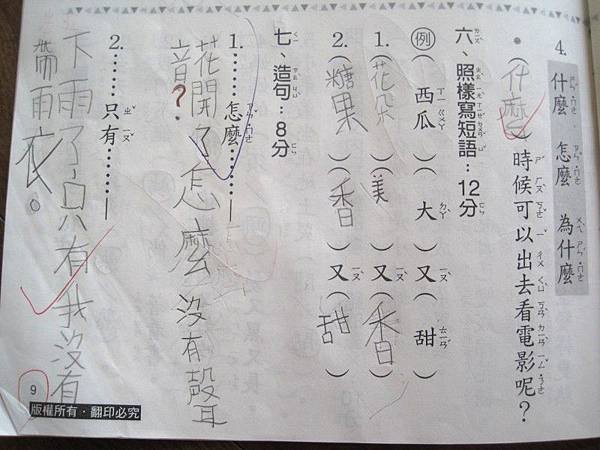 4. 什麼 怎麼 為什麼
•(什麼)時候可以出去看電影呢?
六、照樣寫短語:12分
例 (西瓜)(大)又(甜)
1.(花朵)(美)又(香)
2.(糖果)(香)又(甜)
七、造句:8分
1.……怎麼……
花開了怎麼沒有聲
音?
2.……只有……
下雨了,只有我沒有
帶雨衣。
9
版權所有·翻印必究